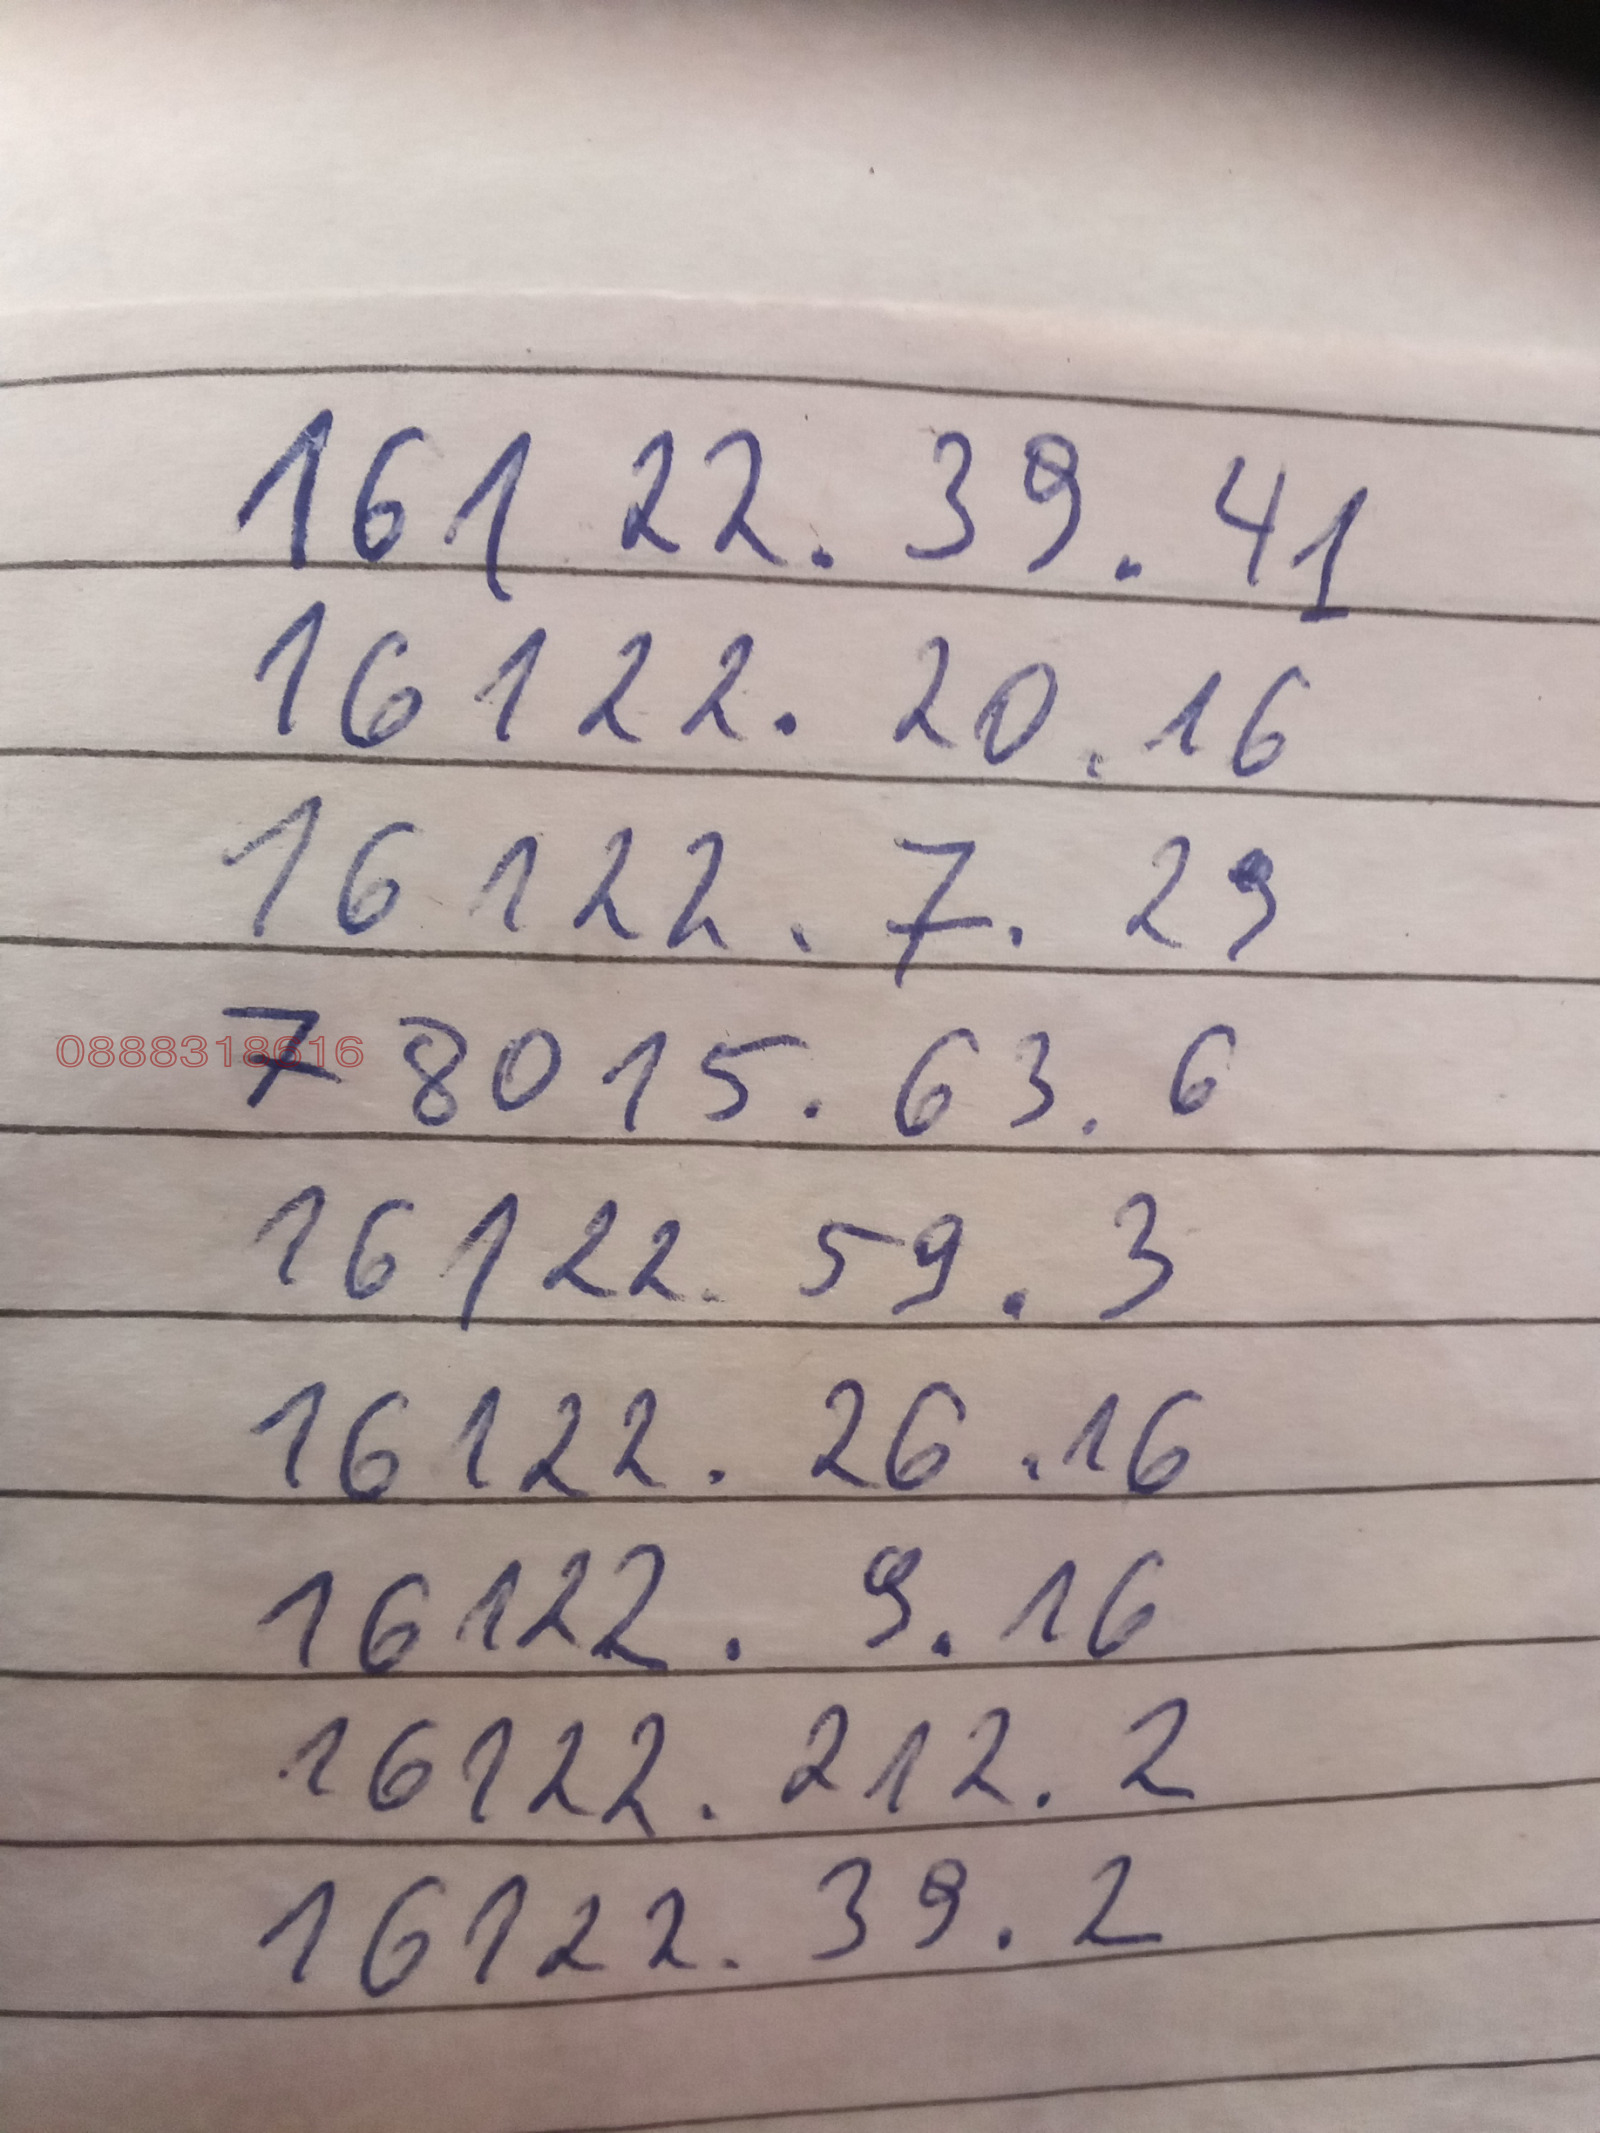 16122.39.41
16122.20.16
16122.7.29
0888318616
78015.63.6
16122.59.3
16122.26.16
16122.9.16
16122.212.2
16122.39.2